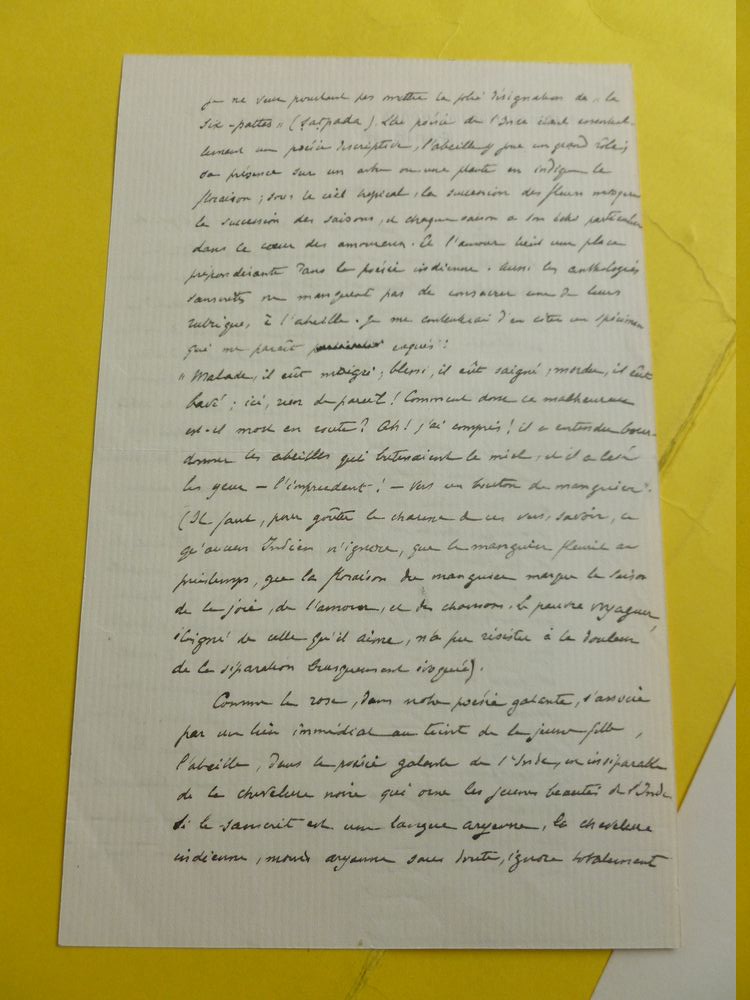 Je ne veux pourtant pas omettre la jolie désignation de "la
six-pattes" (ṣaṭpada). La poésie de l'Inde étant essentiel-
lement une poésie descriptive, l'abeille y joue un grand rôle;
sa présence sur un arbre ou une plante en indique la
floraison; sous le ciel tropical, la succession des fleurs marque
la succession des saisons, et chaque saison a son écho particulier
dans le cœur des amoureux. Et l'amour tient une place
prépondérante dans la poésie indienne. Aussi les anthologies
sanscrites ne manquent pas de consacrer une de leurs
rubriques à l'abeille. Je me contenterai d'en citer un spécimen
qui me paraît exquis:
"Malade, il eût maigri; blessé, il eût saigné; mordu, il eût
bavé; ici, rien de pareil! Comment donc ce malheureux
est-il mort en route? Ah! j'ai compris! il a entendu bour-
donner les abeilles qui butinaient le miel, et il a levé
les yeux — l'imprudent! — vers un bouton de manguier".
(Il faut, pour goûter le charme de ces vers, savoir, ce
qu'aucun Indien n'ignore, que le manguier fleurit au
printemps, que la floraison du manguier marque la saison
de la joie, de l'amour, et des chansons. Le pauvre voyageur,
éloigné de celle qu'il aime, n'a pu résister à la douleur
de la séparation brusquement évoquée).
Comme la rose, dans notre poésie galante, s'associe
par un lien immédiat au teint de la jeune fille,
l'abeille, dans la poésie galante de l'Inde, est inséparable
de la chevelure noire qui orne les jeunes beautés de l'Inde
Si le sanscrit est une langue aryenne, la chevelure
indienne, moins aryenne sans doute, ignore totalement